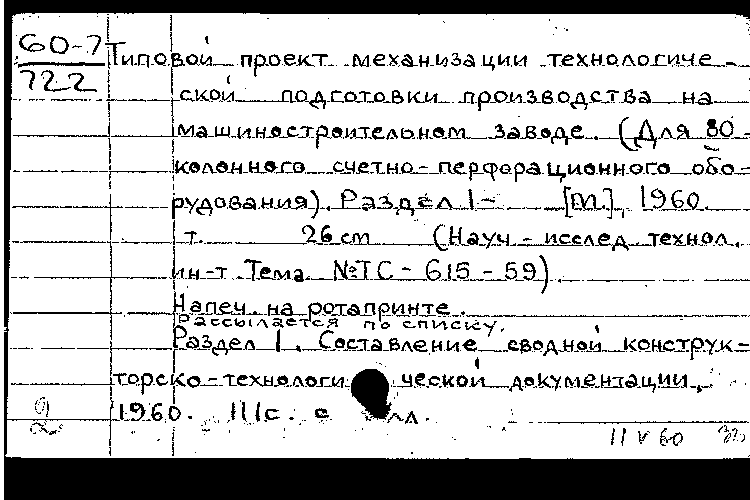 60-7 Типовой проект механизации технологиче-
722
ской подготовки производства на
машиностроительном заводе. (Для 80-
колонного счетно-перфорационного обо-
рудования). Раздел 1- [М.], 1960.
т. 26 см (Науч-исслед. технол.
ин-т. Тема №ТС-615-59)
Напеч. на ротапринте.
Рассылается по списку.
Раздел 1. Составление сводной конструк-
торско-технологической документации,
1960. 111с. с
2
11 V 60